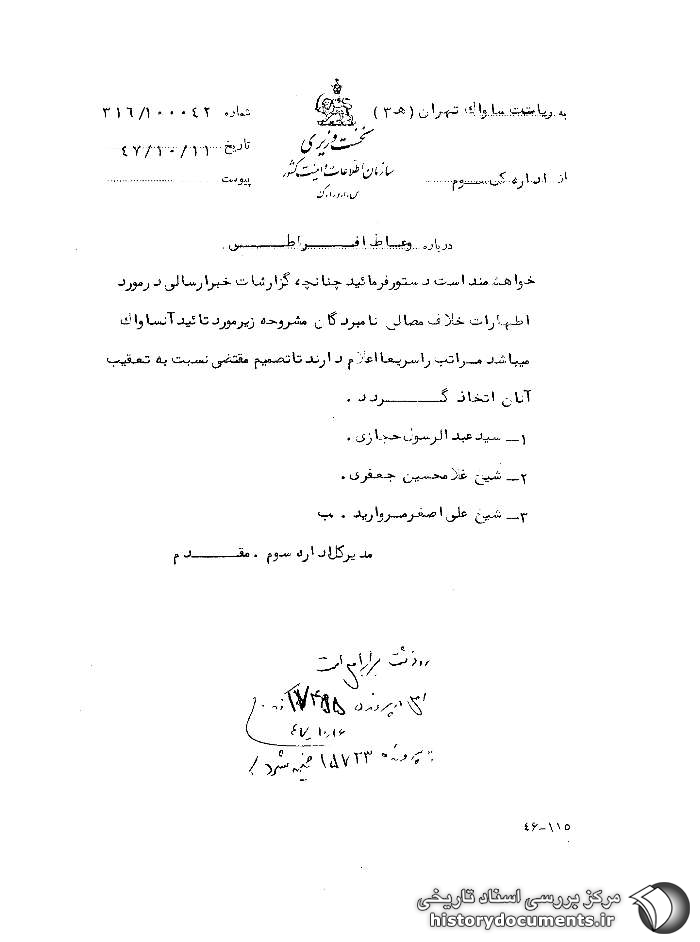 به ریاست ساواك تهران (هـ ۳)
شماره ۳۱۶/۱۰۰۰۴۲
نخست وزیری
تاریخ ۴۷/۱۰/۱۱
سازمان اطلاعات و امنیت کشور
از اداره کل سوم
پیوست
س.ا.و.ا.ک
درباره وعاظ افراطی
خواهشمند است دستور فرمائید چنانچه گزارشات خبر ارسالی در مورد
اظهارات خلاف مصالح نامبردگان مشروحه زیر مورد تائید آنساواك
میباشد مراتب را سریعا اعلام دارند تا تصمیم مقتضی نسبت به تعقیب
آنان اتخاذ گردد .
۱ــ سید عبدالرسول حجازی .
۲ــ شیخ غلامحسین جعفری .
۳ــ شیخ علی اصغر مروارید . ب
مدیر کل اداره سوم . مقدم
رونوشت برابر اصل است
اصل در پرونده
۴۷/۱۰/۱۶
به پرونده ۱۵۷۲۳ ضمیمه شود
۴۶-۱۱۵
مرکز بررسی اسناد تاریخی
historydocuments.ir